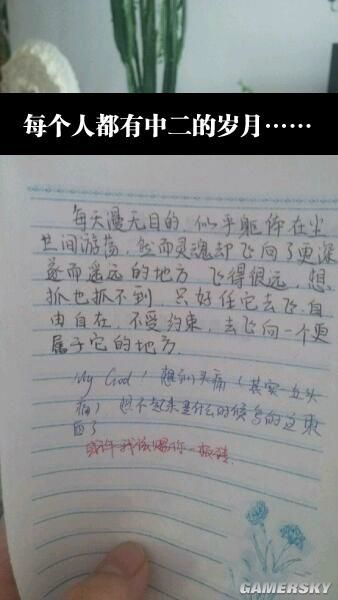 每个人都有中二的岁月……
每天漫无目的，似乎躯体在尘
世间游荡，然而灵魂却飞向了更深
邃而遥远的地方，飞得很远，想
抓也抓不到，只好任它去飞，自
由自在，不受约束，去飞向一个更
属于它的地方。
My God！想到头痛（其实
想不起来是什么时候写的这东
西了
或许我该赐你一板砖。
GAMERSKY